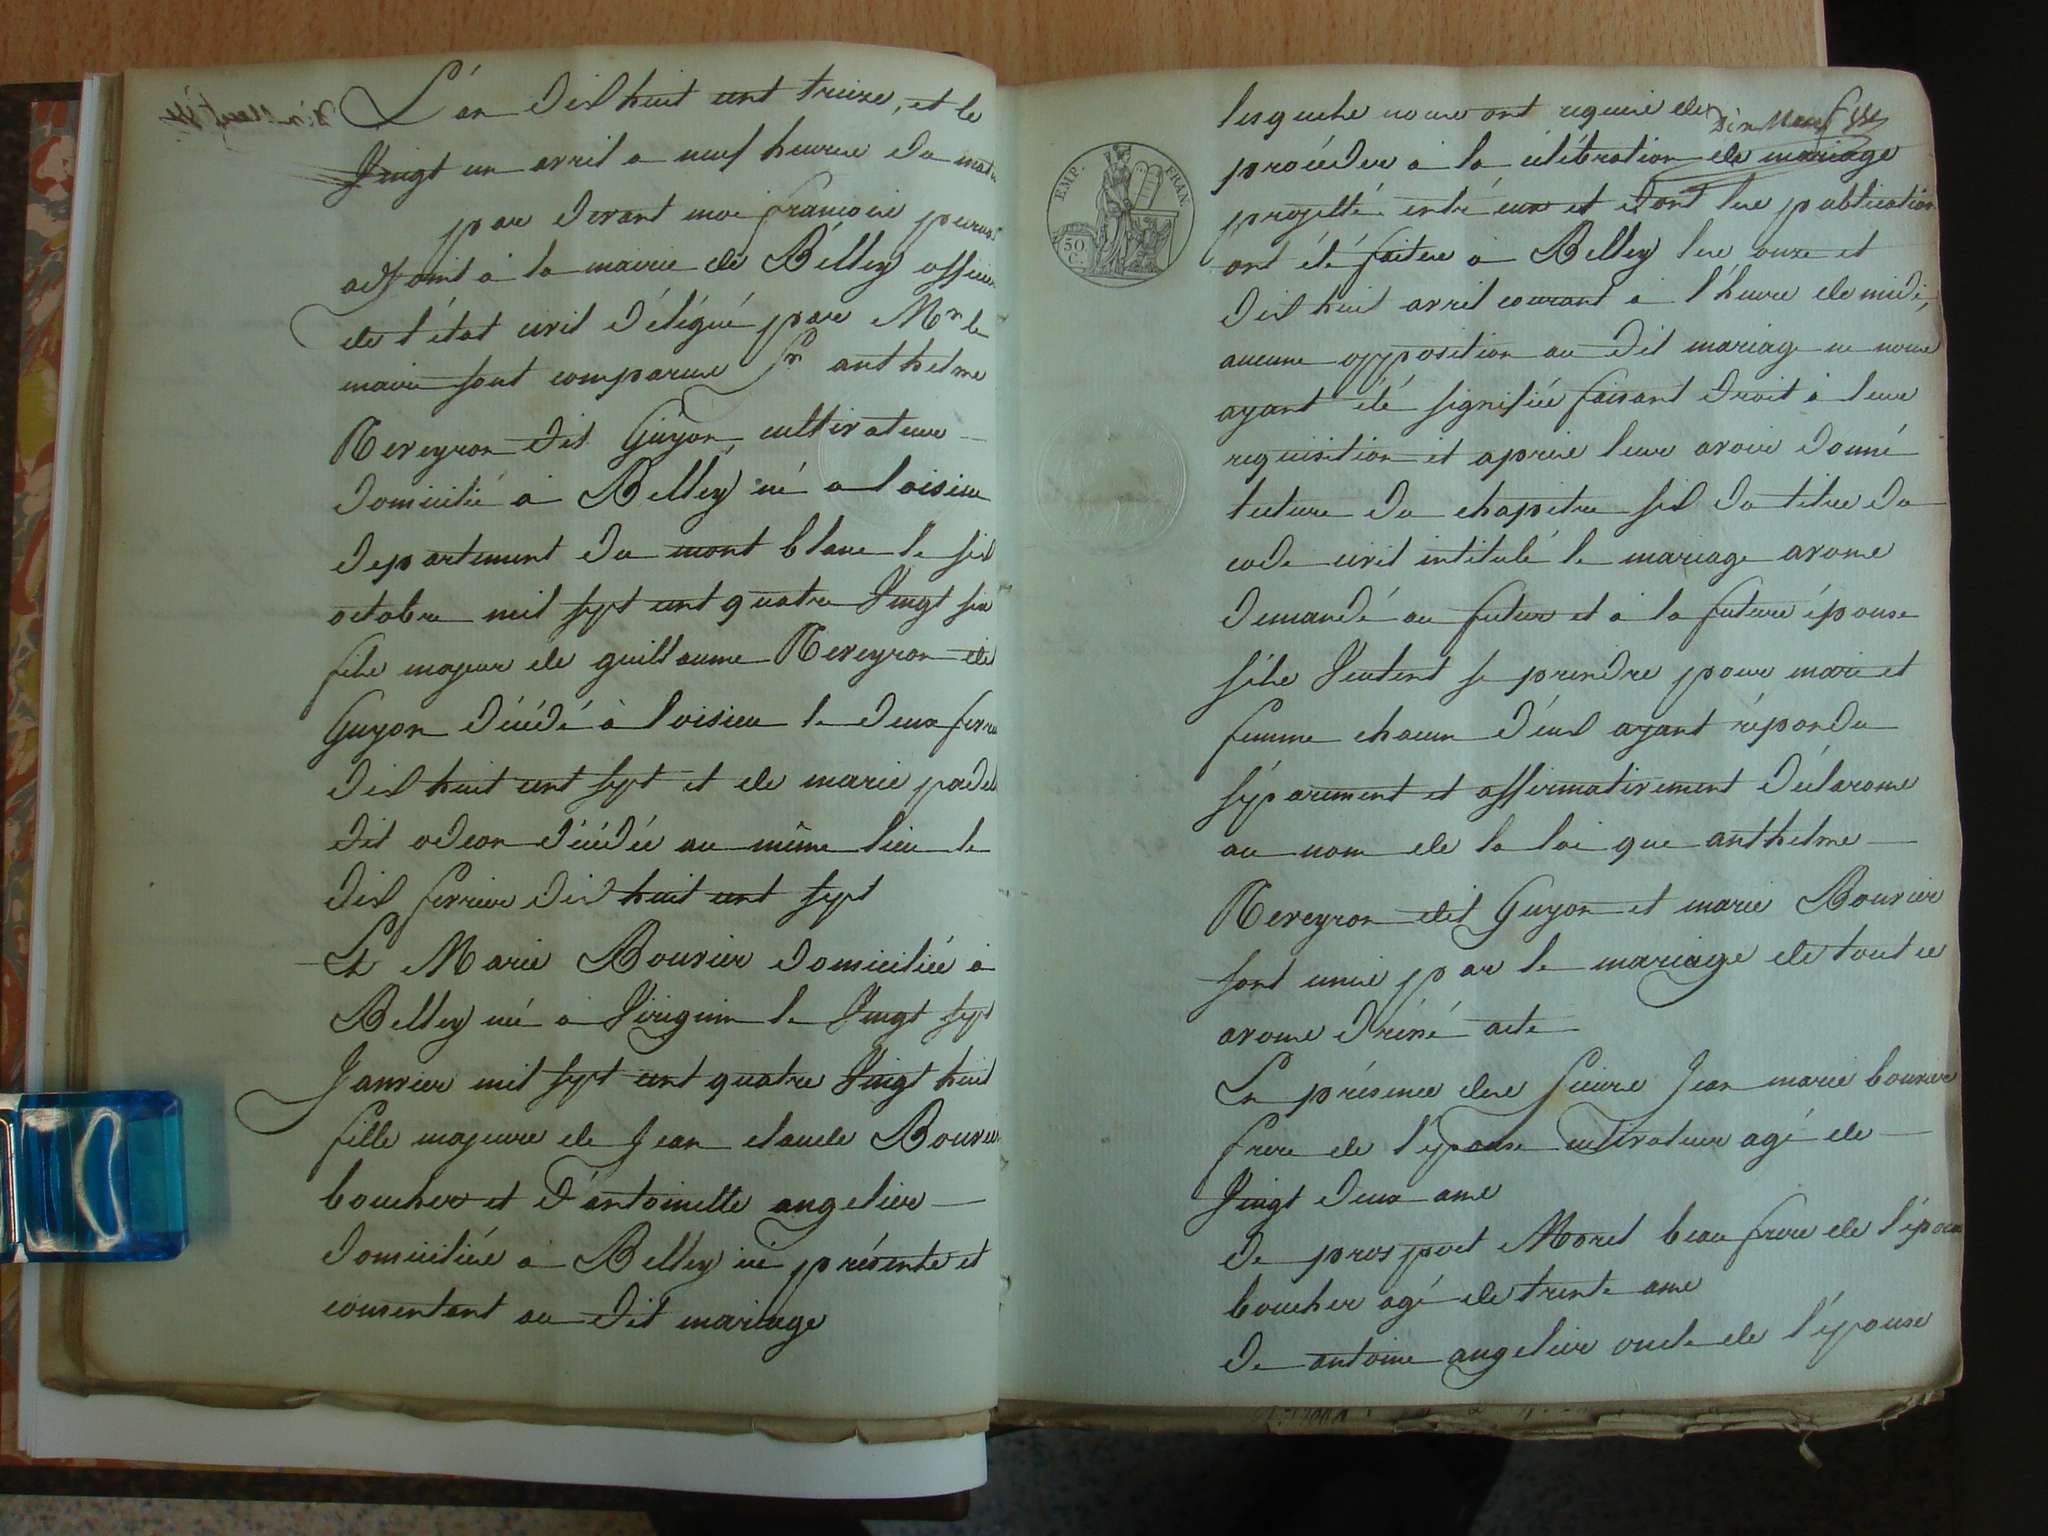 L'an dixhuit cent treize, et le
Vingt un avril a neuf heures du matin
par devant moi françois
adjoint à la mairie de Bélley officier
de l'état civil délégué par Mr le
maire sont comparus Sr anthelme
Nereyron dit Guyon cultivateur
domicilié à Belley né a loisieu
departement du mont blanc le six
octobre mil sept cent quatre Vingt six
fils majeur de guillaume Nereyron dit
Guyon décédé à loisieu le deux fevrier
dixhuit cent sept et de marie
dit odeon décédée au même lieu le
dix fevrier dixhuit cent sept
Et Marie Bouvier domiciliée à
Belley née a Virignin le Vingt sept
Janvier mil sept cent quatre Vingt huit
fille majeure de Jean claude Bouvier
boucher et d'antoinette angelier
domiciliés à Belley ici présents et
consentant au dit mariage
Dix Neuf
lesquels nous ont requis de
procéder à la célébration de mariage
projetté entr'eux et dont les publications
EMP. FRAN.
50 C.
ont été faites a Belley les onze et
dixhuit avril courant à l'heure de midi,
aucune opposition au dit mariage ne nous
ayant été signifiée faisant droit à leur
requisition et après leur avoir donné
lecture du chapitre six du titre du
code civil intitulé le mariage avons
demandé au futur et à la future épouse
s'ils Veulent se prendre pour mari et
femme chacun d'eux ayant répondu
séparement et affirmativement déclarons
au nom de la loi que anthelme
Nereyron dit Guyon et marie Bouvier
sont unis par le mariage de tout ce
avons dressé acte
En présence des sieurs Jean marie bouvier
frere de l'épouse cultivateur agé de
Vingt deux ans
De prosper Morel beau frere de l'épouse
boucher agé de trente ans
De antoine angelier oncle de l'épouse